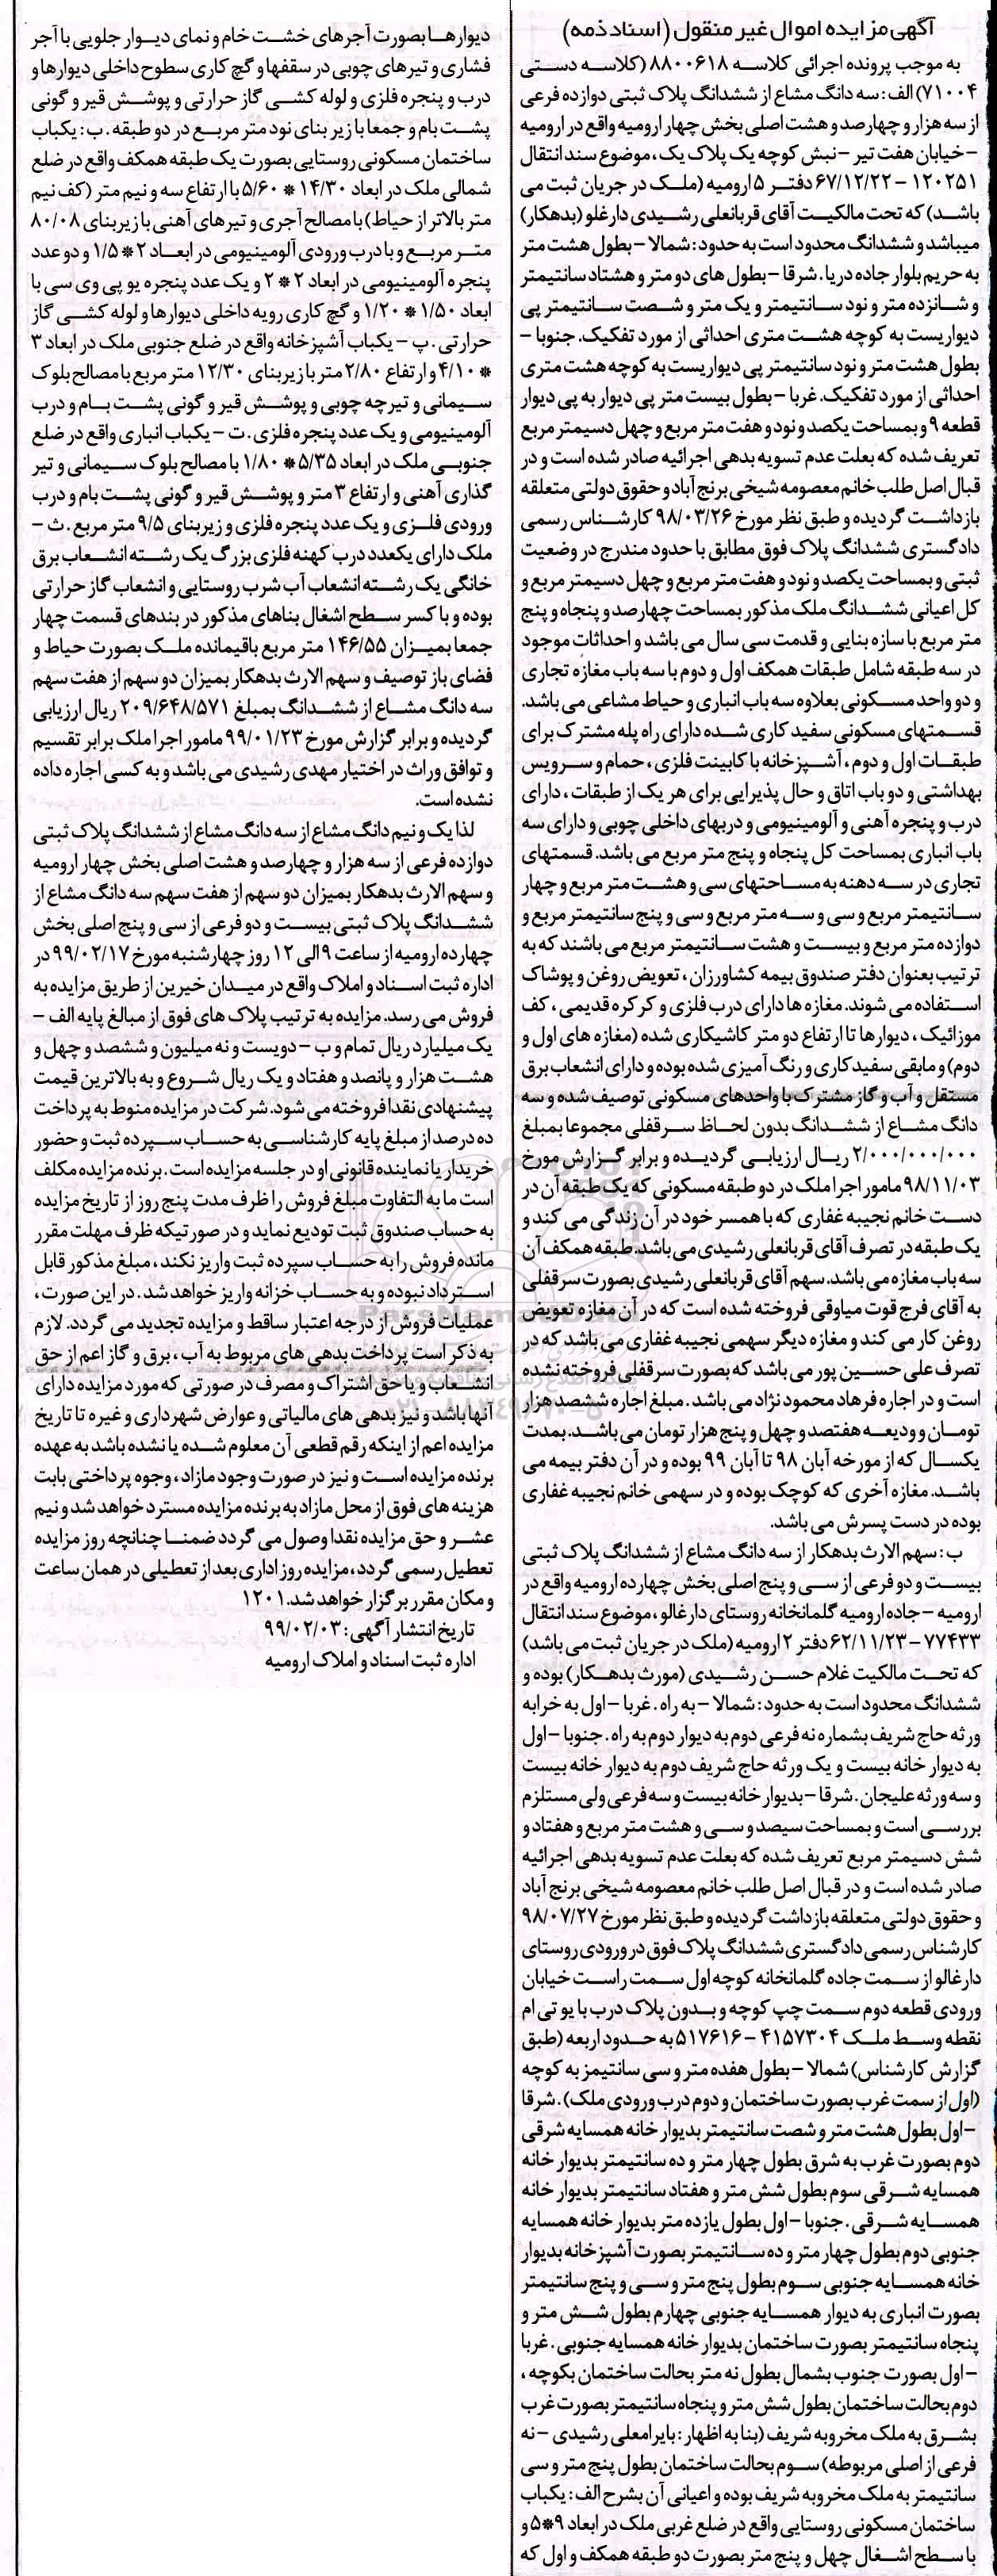 آگهی مزایده اموال غیر منقول (اسناد ذمه)
به موجب پرونده اجرائی کلاسه ۸۸۰۰۶۱۸ (کلاسه دستی
۷۱۰۰۴) الف: سه دانگ مشاع از ششدانگ پلاک ثبتی دوازده فرعی
از سه هزار و چهارصد و هشت اصلی بخش چهار ارومیه واقع در ارومیه
-خیابان هفت تیر -نبش کوچه یک پلاک یک، موضوع سند انتقال
۱۲۰۲۵۱ - ۶۷/۱۲/۲۲ دفتر ۵ ارومیه (ملک در جریان ثبت می
باشد) که تحت مالکیت آقای قربانعلی رشیدی دارغلو (بدهکار)
میباشد و ششدانگ محدود است به حدود: شمالا -بطول هشت متر
به حریم بلوار جاده دریا. شرقا -بطول های دو متر و هشتاد سانتیمتر
و شانزده متر و نود سانتیمتر و یک متر و شصت سانتیمتر پی
دیواریست به کوچه هشت متری احداثی از مورد تفکیک. جنوبا -
بطول هشت متر و نود سانتیمتر پی دیواریست به کوچه هشت متری
احداثی از مورد تفکیک. غربا -بطول بیست متر پی دیوار به پی دیوار
قطعه ۹ و بمساحت یکصد و نود و هفت متر مربع و چهل دسیمتر مربع
تعریف شده که بعلت عدم تسویه بدهی اجرائیه صادر شده است و در
قبال اصل طلب خانم معصومه شیخی برنج آباد و حقوق دولتی متعلقه
بازداشت گردیده و طبق نظر مورخ ۹۸/۰۳/۲۶ کارشناس رسمی
دادگستری ششدانگ پلاک فوق مطابق با حدود مندرج در وضعیت
ثبتی و بمساحت یکصد و نود و هفت متر مربع و چهل دسیمتر مربع و
کل اعیانی ششدانگ ملک مذکور بمساحت چهارصد و پنجاه و پنج
متر مربع با سازه بنایی و قدمت سی سال می باشد و احداثات موجود
در سه طبقه شامل طبقات همکف اول و دوم با سه باب مغازه تجاری
و دو واحد مسکونی بعلاوه سه باب انباری و حیاط مشاعی می باشد.
قسمتهای مسکونی سفید کاری شده دارای راه پله مشترک برای
طبقات اول و دوم، آشپزخانه با کابینت فلزی، حمام و سرویس
بهداشتی و دو باب اتاق و حال پذیرایی برای هر یک از طبقات، دارای
درب و پنجره آهنی و آلومینیومی و دربهای داخلی چوبی و دارای سه
باب انباری بمساحت کل پنجاه و پنج متر مربع می باشد. قسمتهای
تجاری در سه دهنه به مساحتهای سی و هشت متر مربع و چهار
سانتیمتر مربع و سی و سه متر مربع و سی و پنج سانتیمتر مربع و
دوازده متر مربع و بیست و هشت سانتیمتر مربع می باشند که به
ترتیب بعنوان دفتر صندوق بیمه کشاورزان، تعویض روغن و پوشاک
استفاده می شوند. مغازه ها دارای درب فلزی و کرکره قدیمی، کف
موزائیک، دیوارها تا ارتفاع دو متر کاشیکاری شده (مغازه های اول و
دوم) و مابقی سفید کاری و رنگ آمیزی شده بوده و دارای انشعاب برق
مستقل و آب و گاز مشترک با واحدهای مسکونی توصیف شده و سه
دانگ مشاع از ششدانگ بدون لحاظ سرقفلی مجموعا بمبلغ
۲/۰۰۰/۰۰۰/۰۰۰ ریال ارزیابی گردیده و برابر گزارش مورخ
۹۸/۱۱/۰۳ مامور اجرا ملک در دو طبقه مسکونی که یک طبقه آن در
دست خانم نجیبه غفاری که با همسر خود در آن زندگی می کند و
یک طبقه در تصرف آقای قربانعلی رشیدی می باشد. طبقه همکف آن
سه باب مغازه می باشد. سهم آقای قربانعلی رشیدی بصورت سرقفلی
به آقای فرج قوت میاوقی فروخته شده است که در آن مغازه تعویض
روغن کار می کند و مغازه دیگر سهمی نجیبه غفاری می باشد که در
تصرف علی حسین پور می باشد که بصورت سرقفلی فروخته نشده
است و در اجاره فرهاد محمود نژاد می باشد. مبلغ اجاره ششصد هزار
تومان و ودیعه هفتصد و چهل و پنج هزار تومان می باشد. بمدت
یکسال که از مورخه آبان ۹۸ تا آبان ۹۹ بوده و در آن دفتر بیمه می
باشد. مغازه آخری که کوچک بوده و در سهمی خانم نجیبه غفاری
بوده در دست پسرش می باشد.
ب: سهم الارث بدهکار از سه دانگ مشاع از ششدانگ پلاک ثبتی
بیست و دو فرعی از سی و پنج اصلی بخش چهارده ارومیه واقع در
ارومیه -جاده ارومیه گلمانخانه روستای دارغالو، موضوع سند انتقال
۷۷۴۳۳ - ۶۲/۱۱/۲۳ دفتر ۲ ارومیه (ملک در جریان ثبت می باشد)
که تحت مالکیت غلام حسن رشیدی (مورث بدهکار) بوده و
ششدانگ محدود است به حدود: شمالا -به راه. غربا -اول به خرابه
ورثه حاج شریف بشماره نه فرعی دوم به دیوار دوم به راه. جنوبا -اول
به دیوار خانه بیست و یک ورثه حاج شریف دوم به دیوار خانه بیست
و سه ورثه علیجان. شرقا -بدیوار خانه بیست و سه فرعی ولی مستلزم
بررسی است و بمساحت سیصد و سی و هشت متر مربع و هفتاد و
شش دسیمتر مربع تعریف شده که بعلت عدم تسویه بدهی اجرائیه
صادر شده است و در قبال اصل طلب خانم معصومه شیخی برنج آباد
و حقوق دولتی متعلقه بازداشت گردیده و طبق نظر مورخ ۹۸/۰۷/۲۷
کارشناس رسمی دادگستری ششدانگ پلاک فوق در ورودی روستای
دارغالو از سمت جاده گلمانخانه کوچه اول سمت راست خیابان
ورودی قطعه دوم سمت چپ کوچه و بدون پلاک درب با یو تی ام
نقطه وسط ملک ۴۱۵۷۳۰۴ - ۵۱۷۶۱۶ به حدود اربعه (طبق
گزارش کارشناس) شمالا -بطول هفده متر و سی سانتیمز به کوچه
(اول از سمت غرب بصورت ساختمان و دوم درب ورودی ملک). شرقا
-اول بطول هشت متر و شصت سانتیمتر بدیوار خانه همسایه شرقی
دوم بصورت غرب به شرق بطول چهار متر و ده سانتیمتر بدیوار خانه
همسایه شرقی سوم بطول شش متر و هفتاد سانتیمتر بدیوار خانه
همسایه شرقی. جنوبا -اول بطول یازده متر بدیوار خانه همسایه
جنوبی دوم بطول چهار متر و ده سانتیمتر بصورت آشپزخانه بدیوار
خانه همسایه جنوبی سوم بطول پنج متر و سی و پنج سانتیمتر
بصورت انباری به دیوار همسایه جنوبی چهارم بطول شش متر و
پنجاه سانتیمتر بصورت ساختمان بدیوار خانه همسایه جنوبی. غربا
-اول بصورت جنوب بشمال بطول نه متر بحالت ساختمان بکوچه،
دوم بحالت ساختمان بطول شش متر و پنجاه سانتیمتر بصورت غرب
بشرق به ملک مخروبه شریف (بنا به اظهار: بایرامعلی رشیدی -نه
فرعی از اصلی مربوطه) سوم بحالت ساختمان بطول پنج متر و سی
سانتیمتر به ملک مخروبه شریف بوده و اعیانی آن بشرح الف: یکباب
ساختمان مسکونی روستایی واقع در ضلع غربی ملک در ابعاد ۹*۵ و
با سطح اشغال چهل و پنج متر بصورت دو طبقه همکف و اول که
دیوارها بصورت آجرهای خشت خام و نمای دیوار جلویی با آجر
فشاری و تیرهای چوبی در سقفها و گچ کاری سطوح داخلی دیوارها و
درب و پنجره فلزی و لوله کشی گاز حرارتی و پوشش قیر و گونی
پشت بام و جمعا با زیر بنای نود متر مربع در دو طبقه. ب: یکباب
ساختمان مسکونی روستایی بصورت یک طبقه همکف واقع در ضلع
شمالی ملک در ابعاد ۱۴/۳۰ * ۵/۶۰ با ارتفاع سه و نیم متر (کف نیم
متر بالاتر از حیاط) با مصالح آجری و تیرهای آهنی با زیربنای ۸۰/۰۸
متر مربع و با درب ورودی آلومینیومی در ابعاد ۲ * ۱/۵ و دو عدد
پنجره آلومینیومی در ابعاد ۲ * ۲ و یک عدد پنجره یو پی وی سی با
ابعاد ۱/۵۰ * ۱/۲۰ و گچ کاری رویه داخلی دیوارها و لوله کشی گاز
حرارتی. پ - یکباب آشپزخانه واقع در ضلع جنوبی ملک در ابعاد ۳
* ۴/۱۰ و ارتفاع ۲/۸۰ متر با زیربنای ۱۲/۳۰ متر مربع با مصالح بلوک
سیمانی و تیرچه چوبی و پوشش قیر و گونی پشت بام و درب
آلومینیومی و یک عدد پنجره فلزی. ت - یکباب انباری واقع در ضلع
جنوبی ملک در ابعاد ۵/۳۵ * ۱/۸۰ با مصالح بلوک سیمانی و تیر
گذاری آهنی و ارتفاع ۳ متر و پوشش قیر و گونی پشت بام و درب
ورودی فلزی و یک عدد پنجره فلزی و زیربنای ۹/۵ متر مربع. ث -
ملک دارای یکعدد درب کهنه فلزی بزرگ یک رشته انشعاب برق
خانگی یک رشته انشعاب آب شرب روستایی و انشعاب گاز حرارتی
بوده و با کسر سطح اشغال بناهای مذکور در بندهای قسمت چهار
جمعا بمیزان ۱۴۶/۵۵ متر مربع باقیمانده ملک بصورت حیاط و
فضای باز توصیف و سهم الارث بدهکار بمیزان دو سهم از هفت سهم
سه دانگ مشاع از ششدانگ بمبلغ ۲۰۹/۶۴۸/۵۷۱ ریال ارزیابی
گردیده و برابر گزارش مورخ ۹۹/۰۱/۲۳ مامور اجرا ملک برابر تقسیم
و توافق وراث در اختیار مهدی رشیدی می باشد و به کسی اجاره داده
نشده است.
لذا یک و نیم دانگ مشاع از سه دانگ مشاع از ششدانگ پلاک ثبتی
دوازده فرعی از سه هزار و چهارصد و هشت اصلی بخش چهار ارومیه
و سهم الارث بدهکار بمیزان دو سهم از هفت سهم سه دانگ مشاع از
ششدانگ پلاک ثبتی بیست و دو فرعی از سی و پنج اصلی بخش
چهارده ارومیه از ساعت ۹ الی ۱۲ روز چهارشنبه مورخ ۹۹/۰۲/۱۷ در
اداره ثبت اسناد و املاک واقع در میدان خیرین از طریق مزایده به
فروش می رسد. مزایده به ترتیب پلاک های فوق از مبالغ پایه الف -
یک میلیارد ریال تمام و ب - دویست و نه میلیون و ششصد و چهل و
هشت هزار و پانصد و هفتاد و یک ریال شروع و به بالاترین قیمت
پیشنهادی نقدا فروخته می شود. شرکت در مزایده منوط به پرداخت
ده درصد از مبلغ پایه کارشناسی به حساب سپرده ثبت و حضور
خریدار یا نماینده قانونی او در جلسه مزایده است. برنده مزایده مکلف
است ما به التفاوت مبلغ فروش را ظرف مدت پنج روز از تاریخ مزایده
به حساب صندوق ثبت تودیع نماید و در صورتیکه ظرف مهلت مقرر
مانده فروش را به حساب سپرده ثبت واریز نکند، مبلغ مذکور قابل
استرداد نبوده و به حساب خزانه واریز خواهد شد. در این صورت،
عملیات فروش از درجه اعتبار ساقط و مزایده تجدید می گردد. لازم
به ذکر است پرداخت بدهی های مربوط به آب، برق و گاز اعم از حق
انشعاب و یا حق اشتراک و مصرف در صورتی که مورد مزایده دارای
آنها باشد و نیز بدهی های مالیاتی و عوارض شهرداری و غیره تا تاریخ
مزایده اعم از اینکه رقم قطعی آن معلوم شده یا نشده باشد به عهده
برنده مزایده است و نیز در صورت وجود مازاد، وجوه پرداختی بابت
هزینه های فوق از محل مازاد به برنده مزایده مسترد خواهد شد و نیم
عشر و حق مزایده نقدا وصول می گردد ضمنا چنانچه روز مزایده
تعطیل رسمی گردد، مزایده روز اداری بعد از تعطیلی در همان ساعت
و مکان مقرر برگزار خواهد شد. ۱۲۰۱
تاریخ انتشار آگهی: ۹۹/۰۲/۰۳
اداره ثبت اسناد و املاک ارومیه
ParsNamadData